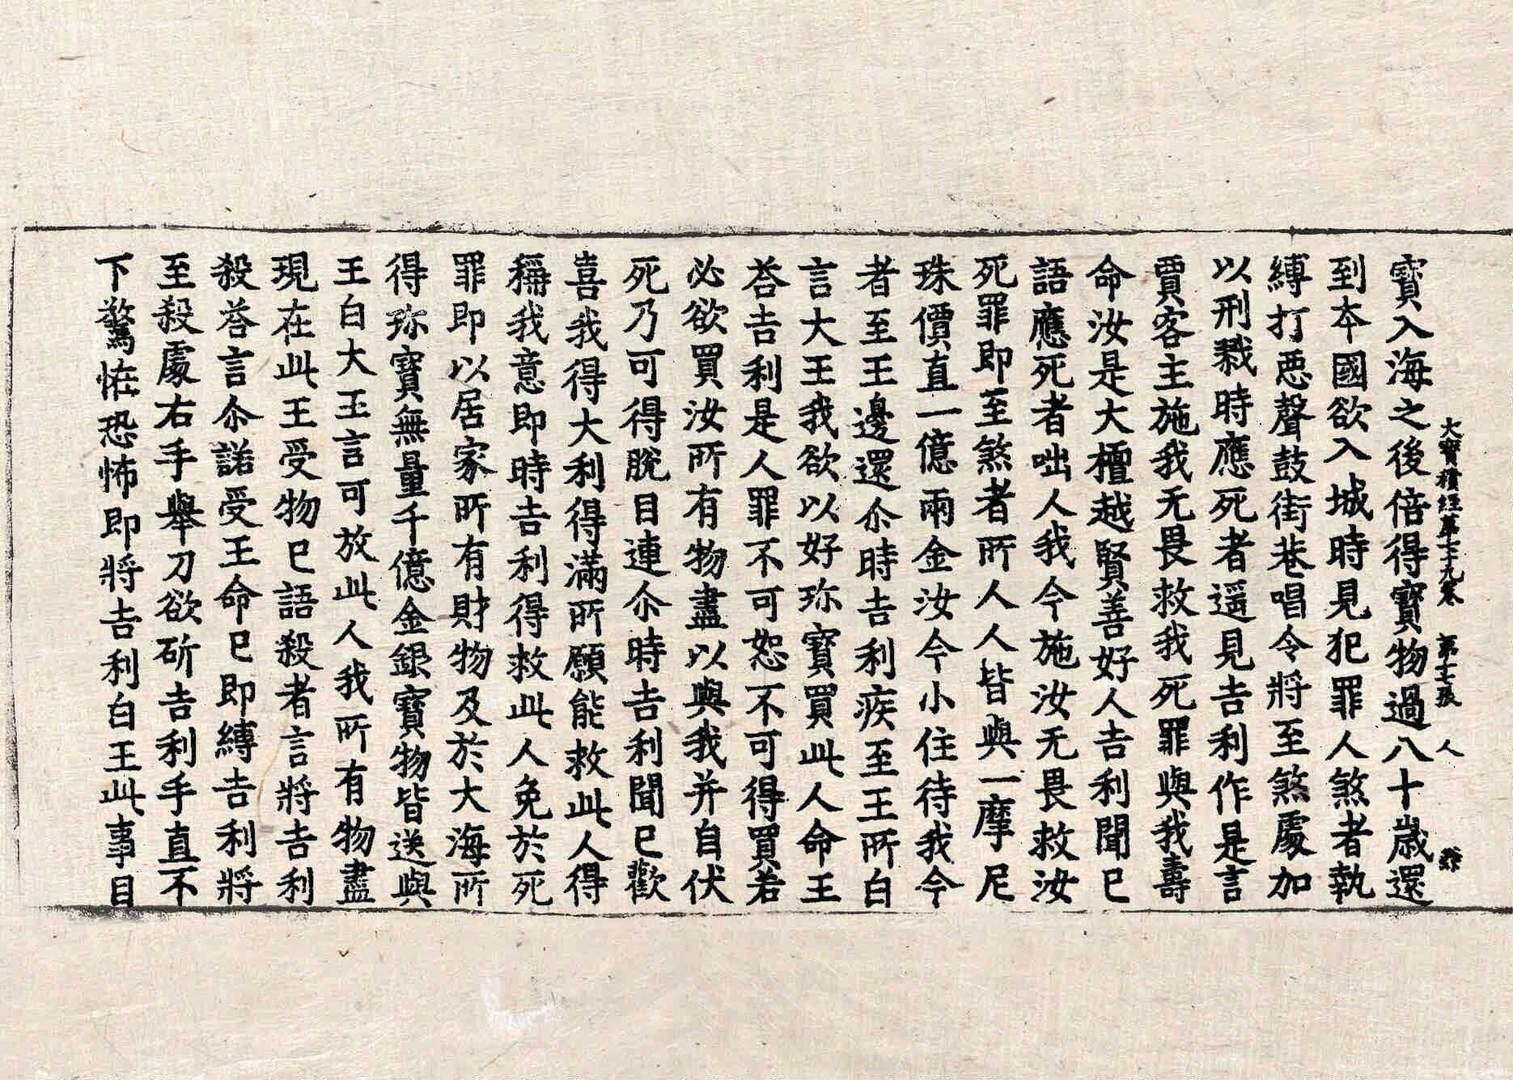 大寶積經第七十九卷 第十七張 人
寶入海之後倍得寶物過八十歲還
到本國欲入城時見犯罪人煞者執
縛打惡聲鼓街巷唱令將至煞處加
以刑戮時應死者遥見吉利作是言
賈客主施我无畏救我死罪與我壽
命汝是大檀越賢善好人吉利聞已
語應死者咄人我今施汝无畏救汝
死罪即至煞者所人人皆與一摩尼
珠價直一億兩金汝今小住待我今
者至王邊還尒時吉利疾至王所白
言大王我欲以好珎寶買此人命王
荅吉利是人罪不可恕不可得買若
必欲買汝所有物盡以與我并自伏
死乃可得脫目連尒時吉利聞已歡
喜我得大利得滿所願能救此人得
稱我意即時吉利得救此人免於死
罪即以居家所有財物及於大海所
得珎寶無量千億金銀寶物皆送與
王白大王言可放此人我所有物盡
現在此王受物已語殺者言將吉利
殺荅言尒諾受王命已即縛吉利將
至殺處右手舉刀欲斫吉利手直不
下驚恠恐怖即將吉利白王此事目